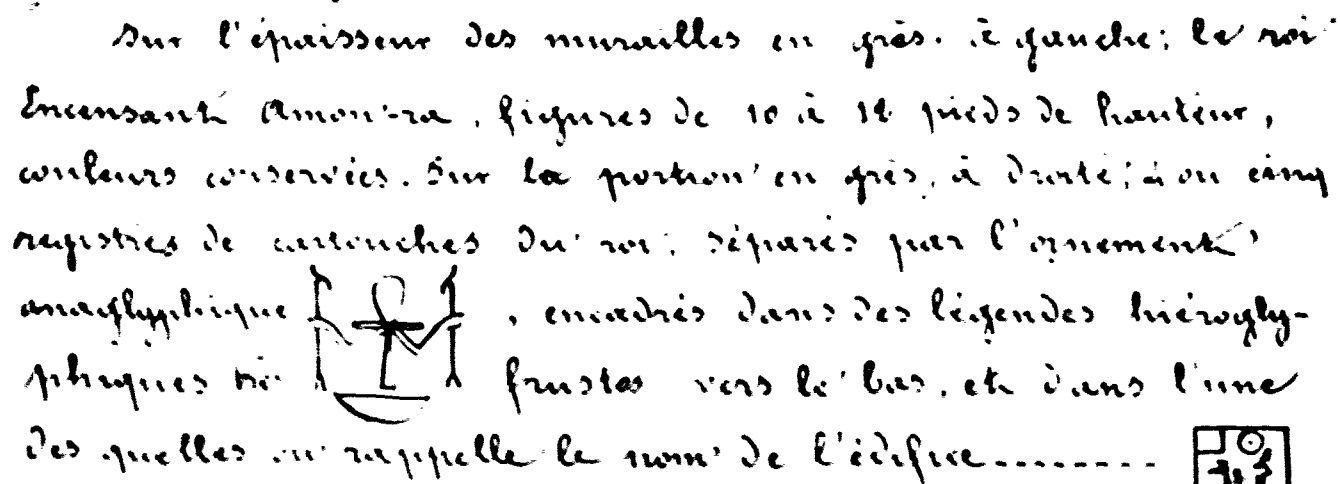 Sur l'épaisseur des murailles en grès. à gauche; le roi
Encensant Amon-ra, figures de 10 à 12 pieds de hauteur,
couleurs conservées. Sur la portion en grès, à droite; 4 ou cinq
registres de cartouches du roi, séparés par l'ornement
anaglyphique , encadrés dans des légendes hiérogly-
phiques très frustes vers le bas, et dans l'une
des quelles on rappelle le nom de l'édifice.........